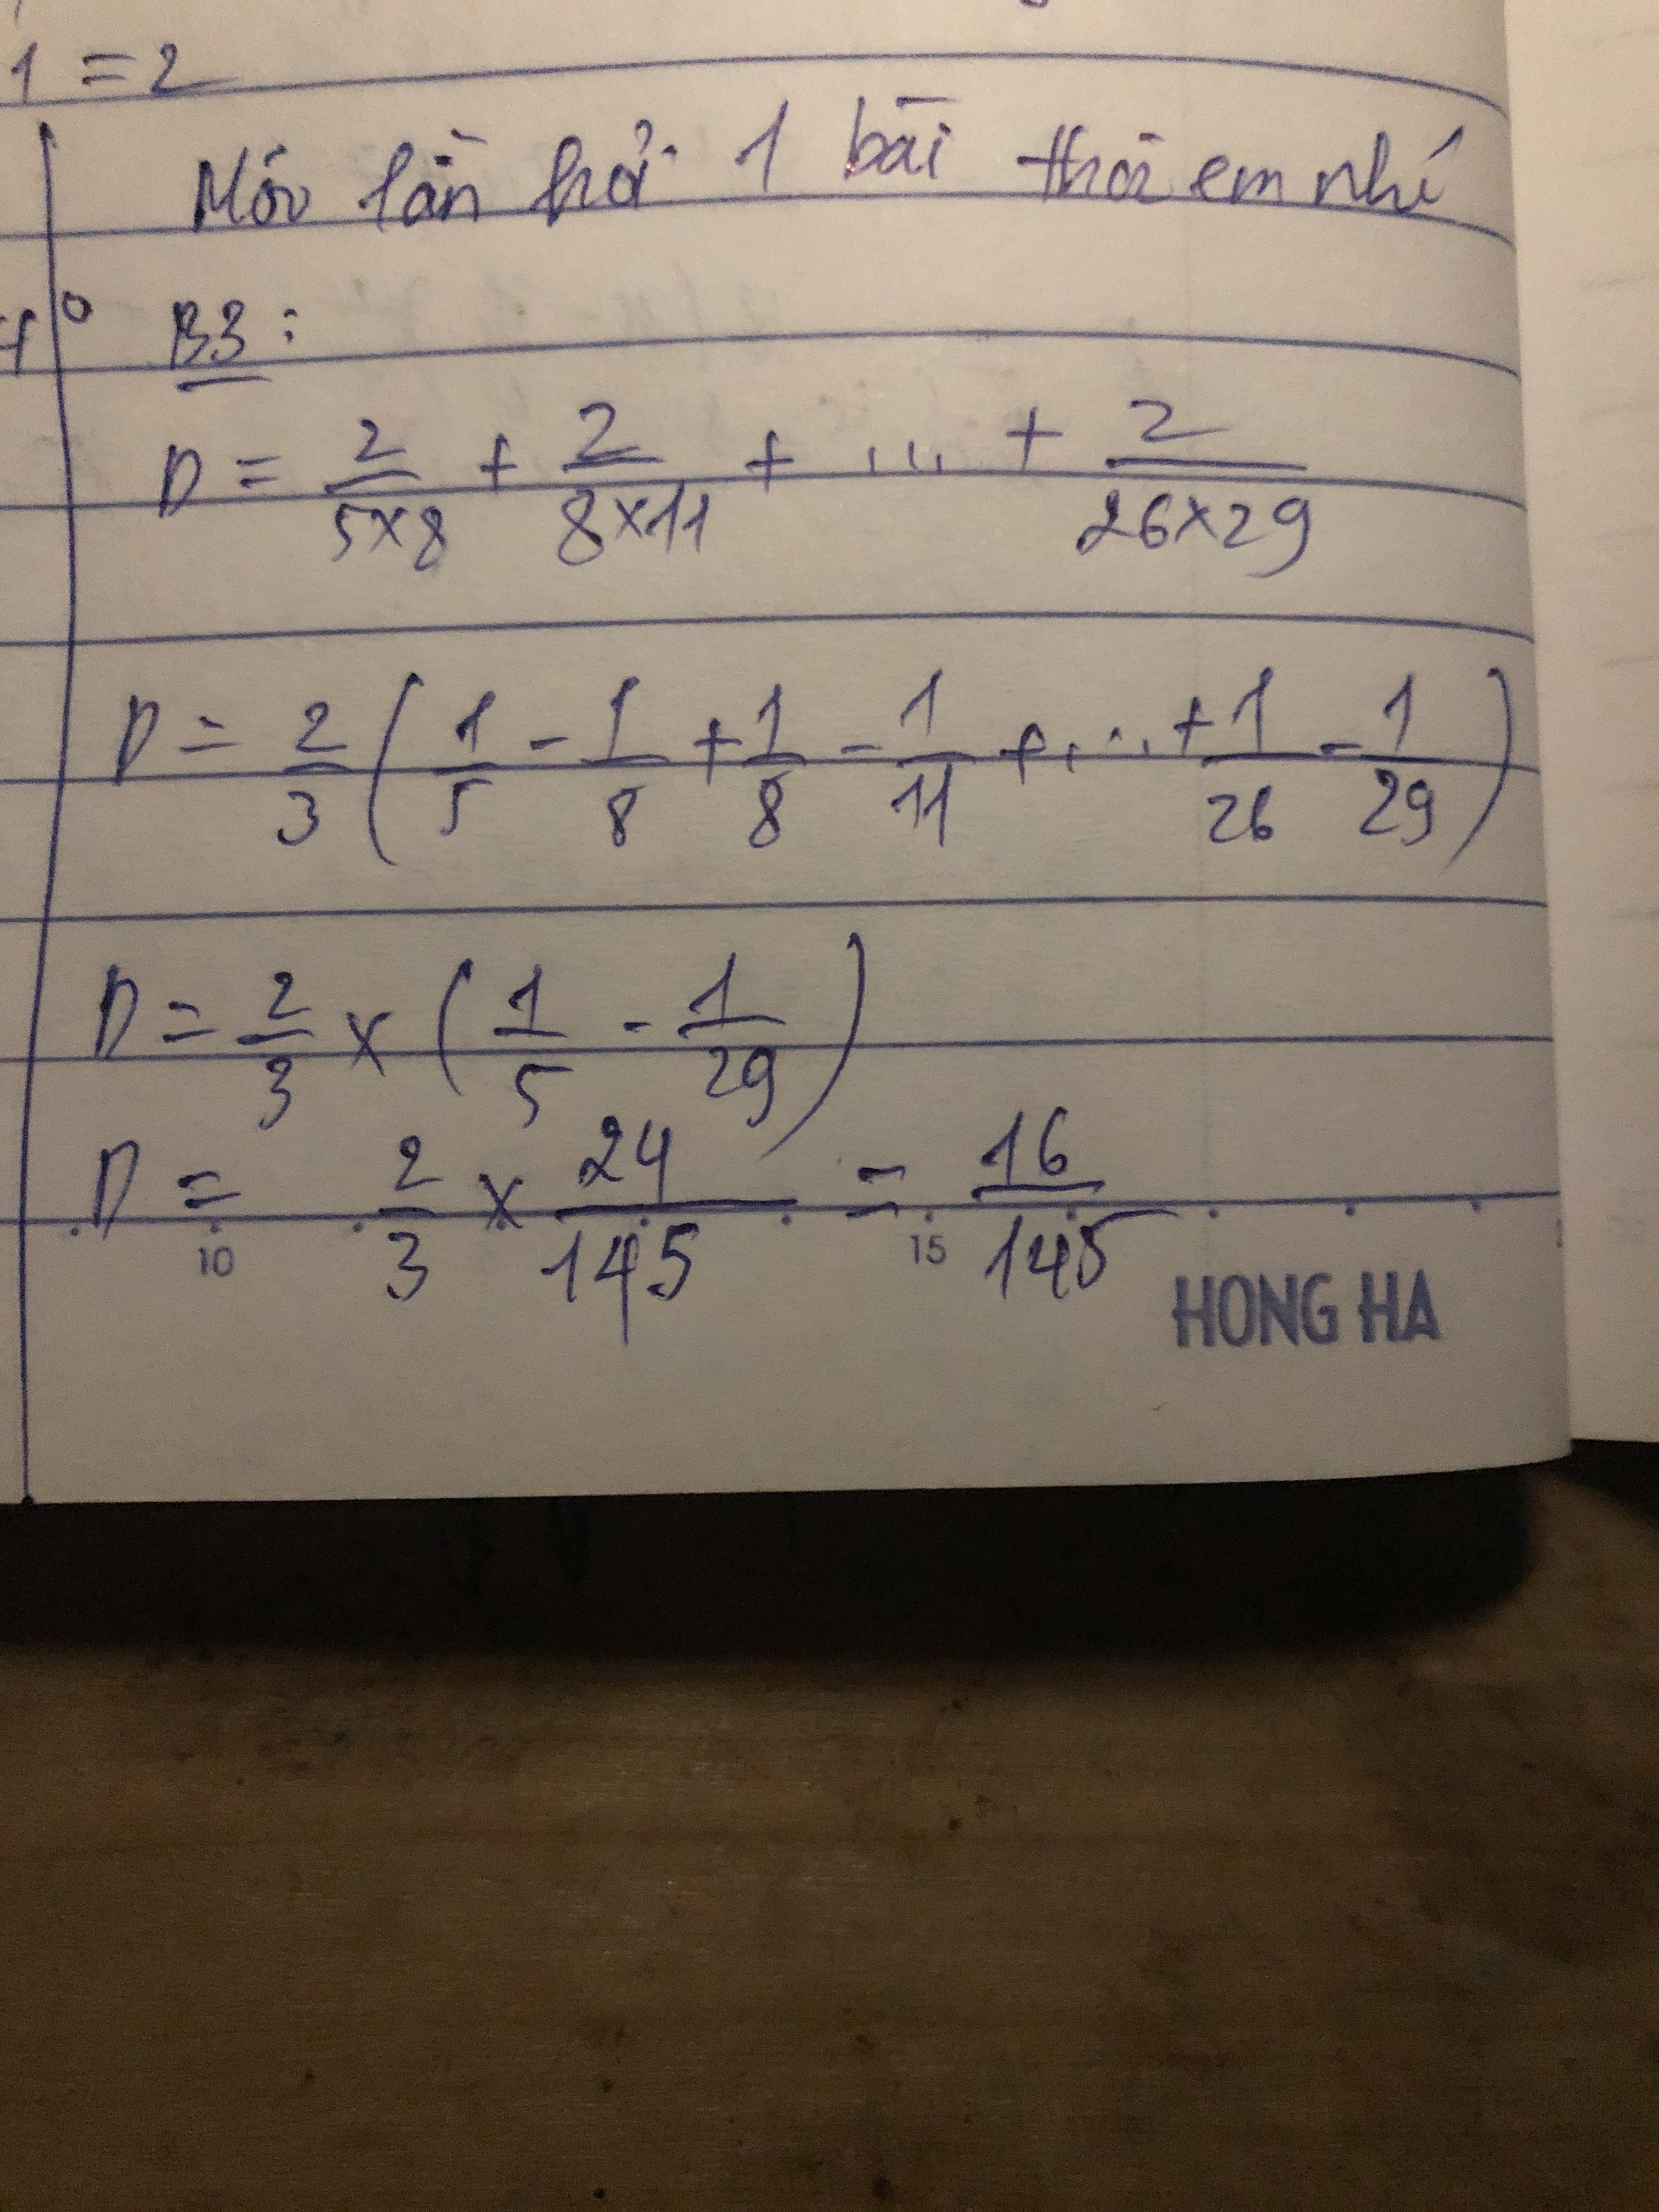 1 = 2
Mỗi lần hỏi 1 bài thôi em nhé
B3:
D = 2/5x8 + 2/8x11 + ... + 2/26x29
D = 2/3 ( 1/5 - 1/8 + 1/8 - 1/11 + ... + 1/26 - 1/29 )
D = 2/3 x ( 1/5 - 1/29 )
D = 2/3 x 24/145 = 16/145
10 15
HONG HA